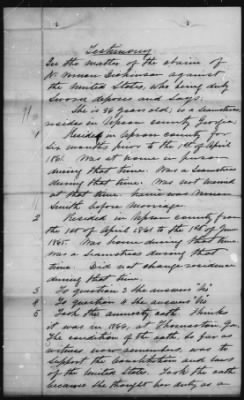 Testimony
In the matter of the claim of
N. Dickinson against
the United States, who being duly
Sworn deposes and Says.
She is 38 years old; is a Seamstress
resides in Upson county Georgia.
1 Resided in Upson county for
Six months prior to the 1st of April
1861. Was at home in person
during that time. Was a Seamstress
during that time. Was not named
at that time. Name was
Smith before marriage.
2 Resided in Upson county from
the 1st of April 1861 to the 1st of June
1865. Was home during that time
was a Seamstress during that
time. Did not change residence
during that time.
3 To question 3 she answers "No"
4 To question 4 she answers "No"
5 Took the amnesty oath. Think
it was in 1866, at Thomaston, Ga.
The condition of the oath so far as
witness now remembers, was to
Support the Constitution and laws
of the United States. Took the oath
because she thought her duty as a